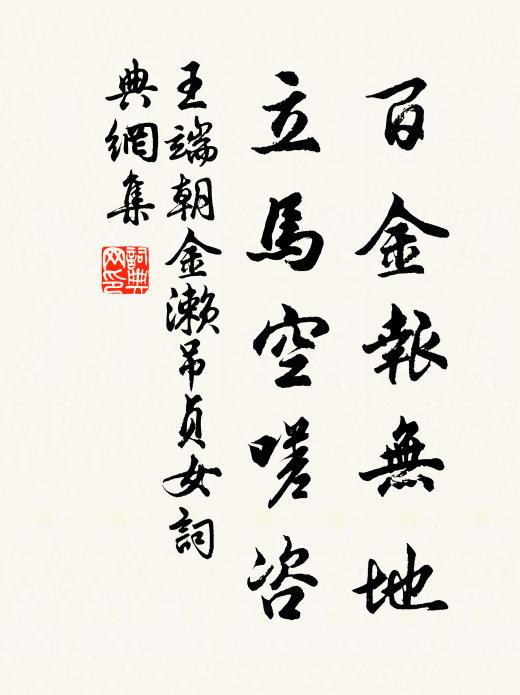 百金報無地
立馬空嗟咨
王端朝金瀨吊貞女詞
典網集
詞典网印